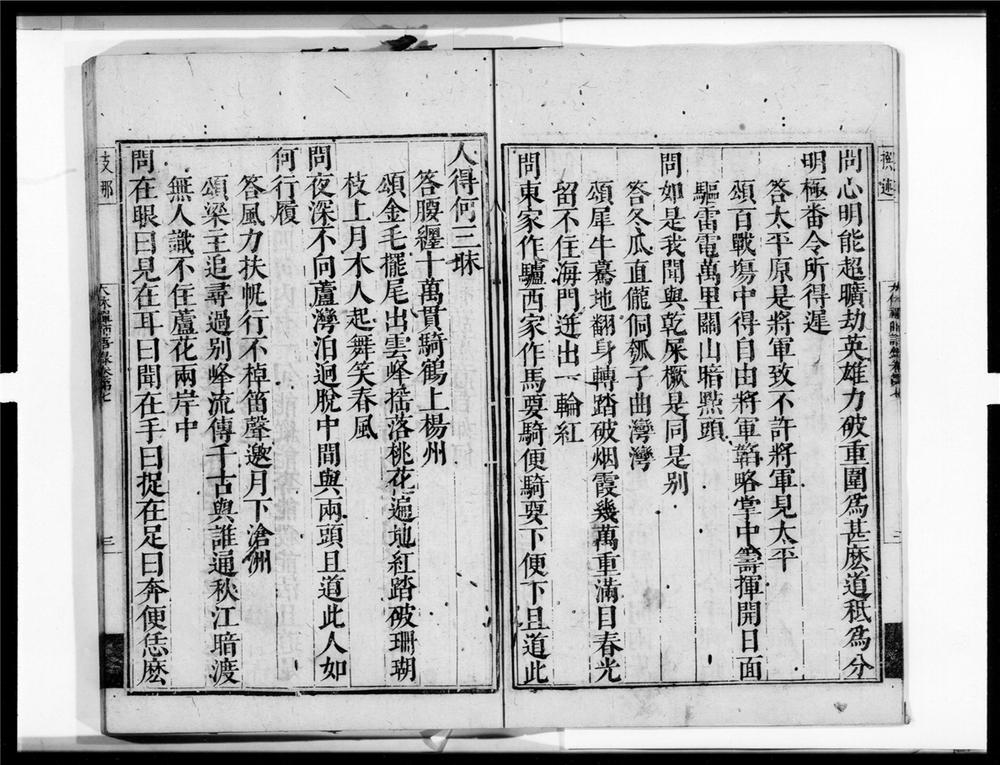 問心明能超曠劫英雄力破重圍爲甚麽道秪爲分
明極番令所得遲
答太平原是將軍致不許將軍見太平
頌百戰塲中得自由將軍韜略掌中籌揮開日面
驅雷電萬里關山暗㸃頭
問如是我聞與乾屎橛是同是别
答冬瓜直儱侗瓠子曲灣灣
頌犀牛驀地翻身轉踏破烟霞幾萬重滿目春光
留不住海門迸出一輪紅
問東家作驢西家作馬要騎便騎要下便下且道此
人得何三昧
答腰纏十萬貫騎鶴上楊州
頌金毛擺尾出雲峰揺落桃花遍地紅踏破珊瑚
枝上月木人起舞笑春風
問夜深不向蘆灣泊迥脫中間與兩頭且道此人如
何行履
答風力扶帆行不棹笛聲邀月下滄洲
頌梁王追尋過别峰流傳千古與誰通秋江暗渡
無人識不住蘆花兩岸中
問在眼曰見在耳曰聞在手曰捉在足曰奔便恁麽
支那
三